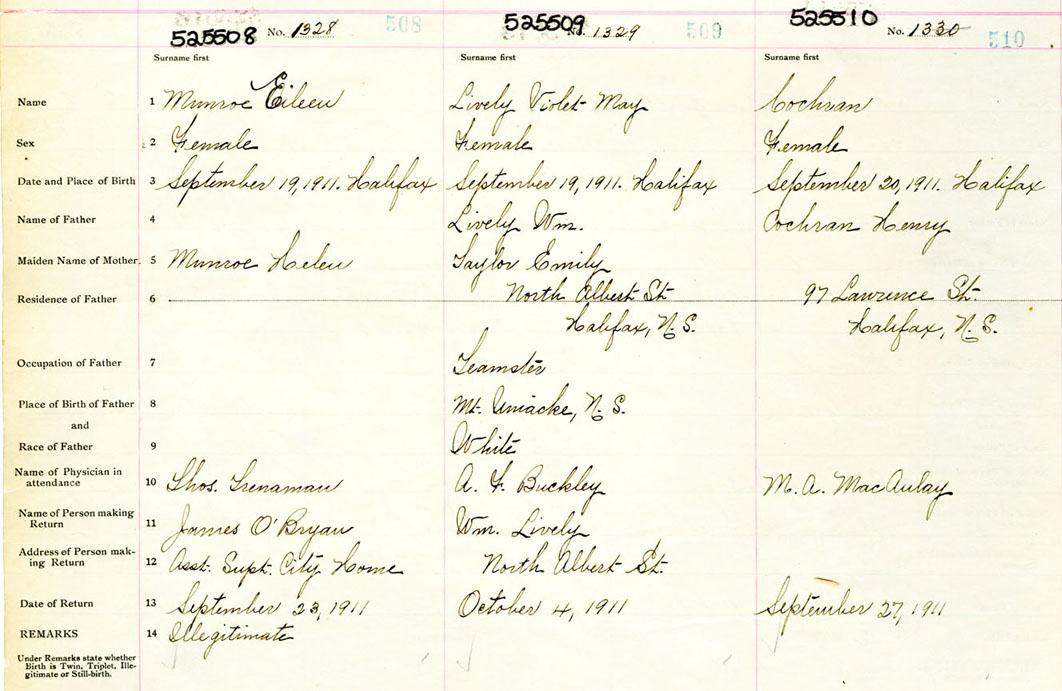 525508 No. 1328 508 525509 No. 1329 509 525510 No. 1330 510
Surname first Surname first Surname first
Name 1 Munroe Eileen Lively Violet May Cochran
Sex 2 Female Female Female
Date and Place of Birth 3 September 19, 1911. Halifax September 19, 1911. Halifax September 20, 1911. Halifax
Name of Father 4 Lively Wm. Cochran Henry
Maiden Name of Mother. 5 Munroe Helen Taylor Emily
Residence of Father 6 North Albert St. 97 Lawrence St.
Halifax, N.S. Halifax, N.S.
Occupation of Father 7 Teamster
Place of Birth of Father 8 Mt. Uniacke, N.S.
and
Race of Father 9 White
Name of Physician in
attendance 10 Thos. Trenaman A. F. Buckley M. A. MacAulay
Name of Person making
Return 11 James O'Bryan Wm. Lively
Address of Person mak-
ing Return 12 Asst. Supt. City Home North Albert St.
Date of Return 13 September 23, 1911 October 4, 1911 September 27, 1911
REMARKS 14 Illegitimate
Under Remarks state whether
Birth is Twin, Triplet, Ille-
gitimate or Still-birth.